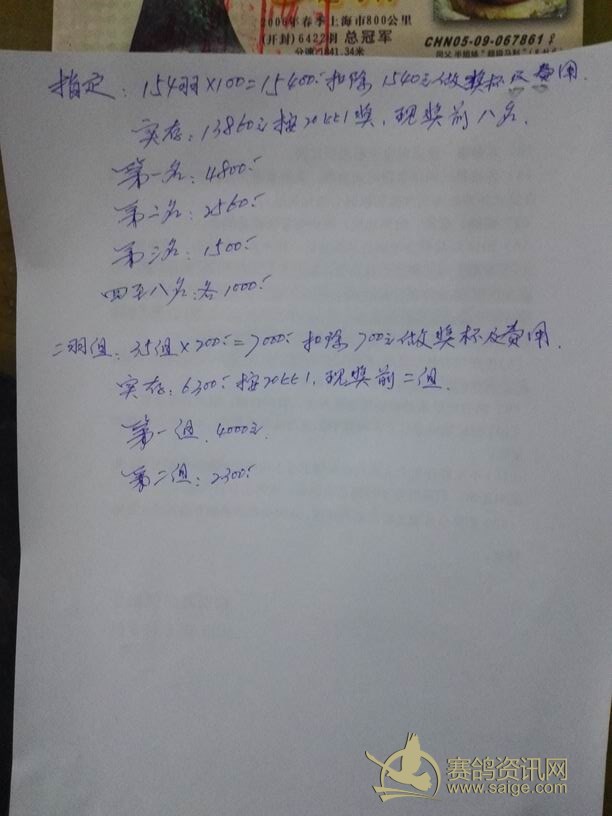 2006年春季上海市800公里
(开封)6422羽 总冠军
分速:1841.34米
CHN05-09-067861
指定: 154羽×100=15400. 扣除1540元做奖杯及费用.
实存: 13860元按20比1奖, 现奖前八名.
第一名: 4800.
第二名: 2560.
第三名: 1500.
四至八名:各1000.
二羽组: 35组×200.=7000. 扣除700元做奖杯及费用.
实存: 6300.按20比1, 现奖前二组.
第一组. 4000元.
第二组: 2300.
赛鸽资讯网
www.saige.com